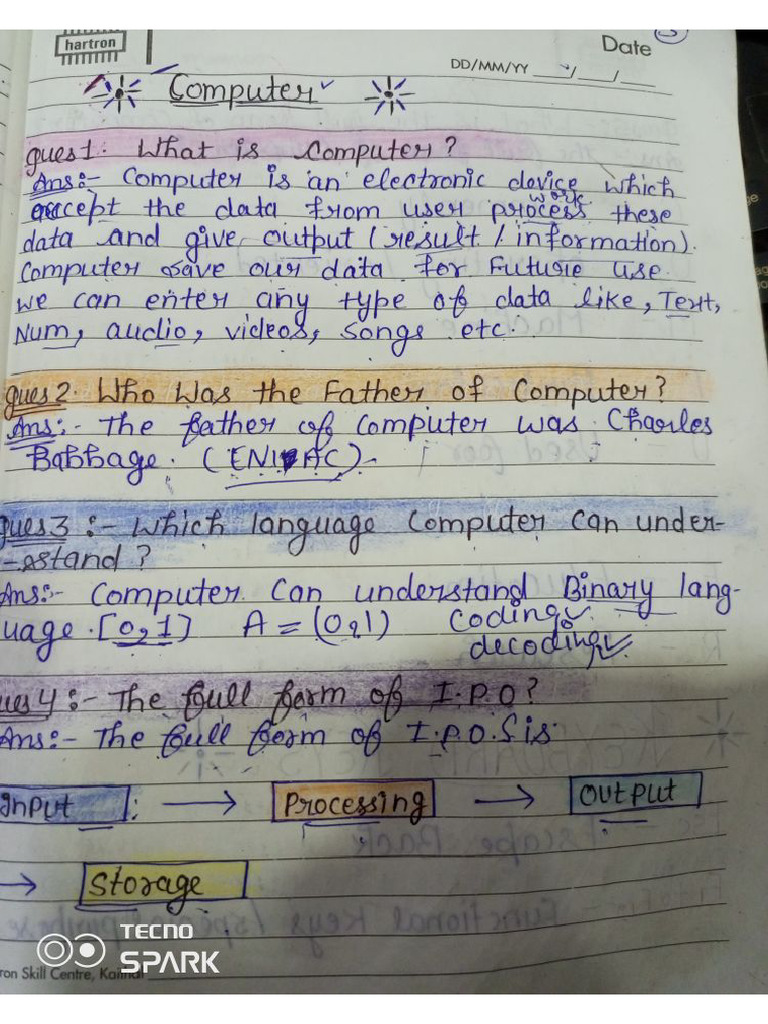 hartron
Date
3
DD/MM/YY ___/___/___
Computer
Ques1. What is computer?
Ans:- Computer is an electronic device which
accept the data from user process these
work
data and give output (result / information).
Computer save our data for future use.
we can enter any type of data like, Text,
Num, audio, videos, songs etc.
Ques2. Who was the Father of Computer?
Ans:- The father of computer was Charles
Babbage. (ENIAC).
Ques3 :- Which language computer can under-
-stand?
Ans:- Computer can understand Binary lang-
uage.[0,1] A = (0,1) Coding
decoding
ues4 :- The full form of I.P.O?
Ans:- The full form of I.P.O.S is
Input : → Processing → Output
→ Storage
TECNO
SPARK
ron Skill Centre,